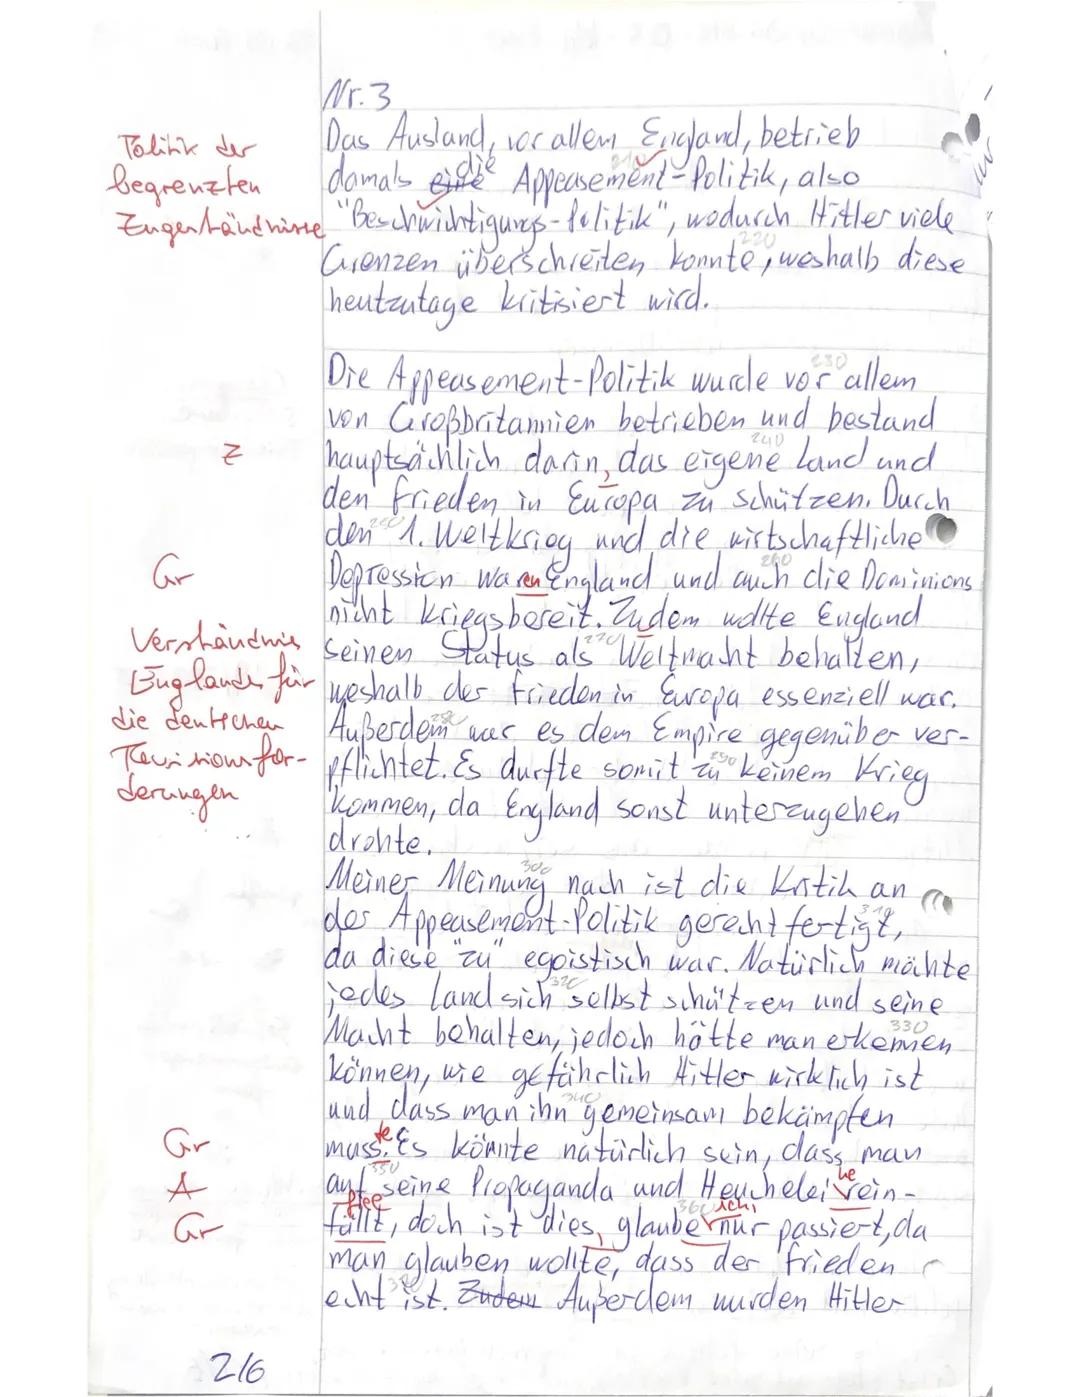 Nr. 3
Das Ausland, vor allem England, betrieb
Politik der
begrenzten
Zugeständnisse
damals eine die Appeasement-Politik, also
210
"Beschwichtigungs-Politik", wodurch Hitler viele
Grenzen überschreiten konnte, weshalb diese
220
heutzutage kritisiert wird.
Die Appeasement-Politik wurde vor allem
230
von Großbritannien betrieben und bestand
hauptsächlich darin, das eigene Land und
240
Z
den Frieden in Europa zu schützen. Durch
den 1. Weltkrieg und die wirtschaftliche
250
Depression waren England und auch die Dominions
260
Gr
nicht kriegsbereit. Zudem wollte England
seinen Status als Weltmacht behalten,
270
Verständnis
Englands für
die deutschen
Revisionsfor-
derungen
weshalb der Frieden in Europa essenziell war.
Außerdem war es dem Empire gegenüber ver-
280
pflichtet. Es durfte somit zu keinem Krieg
290
kommen, da England sonst unterzugehen
drohte.
Meiner Meinung nach ist die Kritik an
300
der Appeasement-Politik gerechtfertigt,
310
da diese "zu" egoistisch war. Natürlich möchte
jedes Land sich selbst schützen und seine
320
Macht behalten, jedoch hätte man erkennen
330
können, wie gefährlich Hitler wirklich ist
und dass man ihn gemeinsam bekämpfen
340
muss. te Es könnte natürlich sein, dass man
Gr
auf seine Propaganda und Heuchelei he rein-
350
A
fällt, fiel doch ist dies, glaube ich, nur passiert, da
360
Gr
man glauben wollte, dass der Frieden
echt ist. Zudem Außerdem wurden Hitler
370
2/6